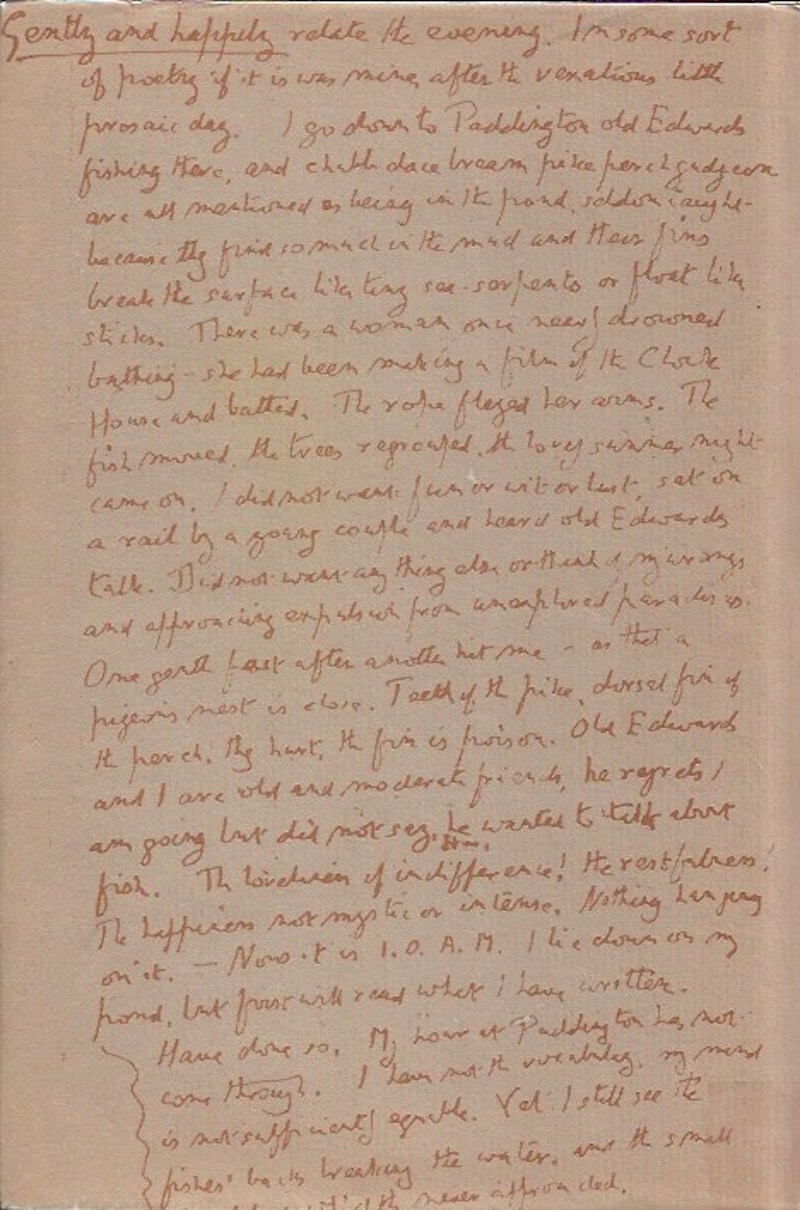 Gently and happily relate the evening. In some sort
of poetry if it is was mine, after the vexatious little
prosaic day. I go down to Paddington old Edwards
fishing there, and chubb dace bream pike perch gudgeon
are all mentioned as being in the pond, seldom caught
because they find so much in the mud and their fins
break the surface like tiny sea-serpents or float like
sticks. There was a woman once nearly drowned
bathing - she had been making a film of the Clock
House and batted. The rope flayed her arms. The
fish moved, the trees regrouped, the lovely summer night
came on. I did not want fun or wit or lust, sat on
a rail by a young couple and heard old Edwards
talk. Did not want any thing else or think of my wrongs
and approaching expulsion from unexplored paradises.
One gentle fact after another hit me - as that a
pigeon's nest is close. Teeth of the pike, dorsal fin of
the perch, they hurt, the fin is poison. Old Edwards
and I are old and moderate friends, he regrets I
am going but did not say, he wanted to talk about
fish. The loveliness of indifference! The restfulness!
The happiness not mystic or intense. Nothing hanging
on it. — Now it is 1.0. A.M. I lie down on my
pond, but first will read what I have written.
Have done so. My hour at Paddington has not
come through. I have not the vocabulary, my mind
is not sufficiently equable. Yet I still see the
fishes' backs breaking the water, and the small
never approached.